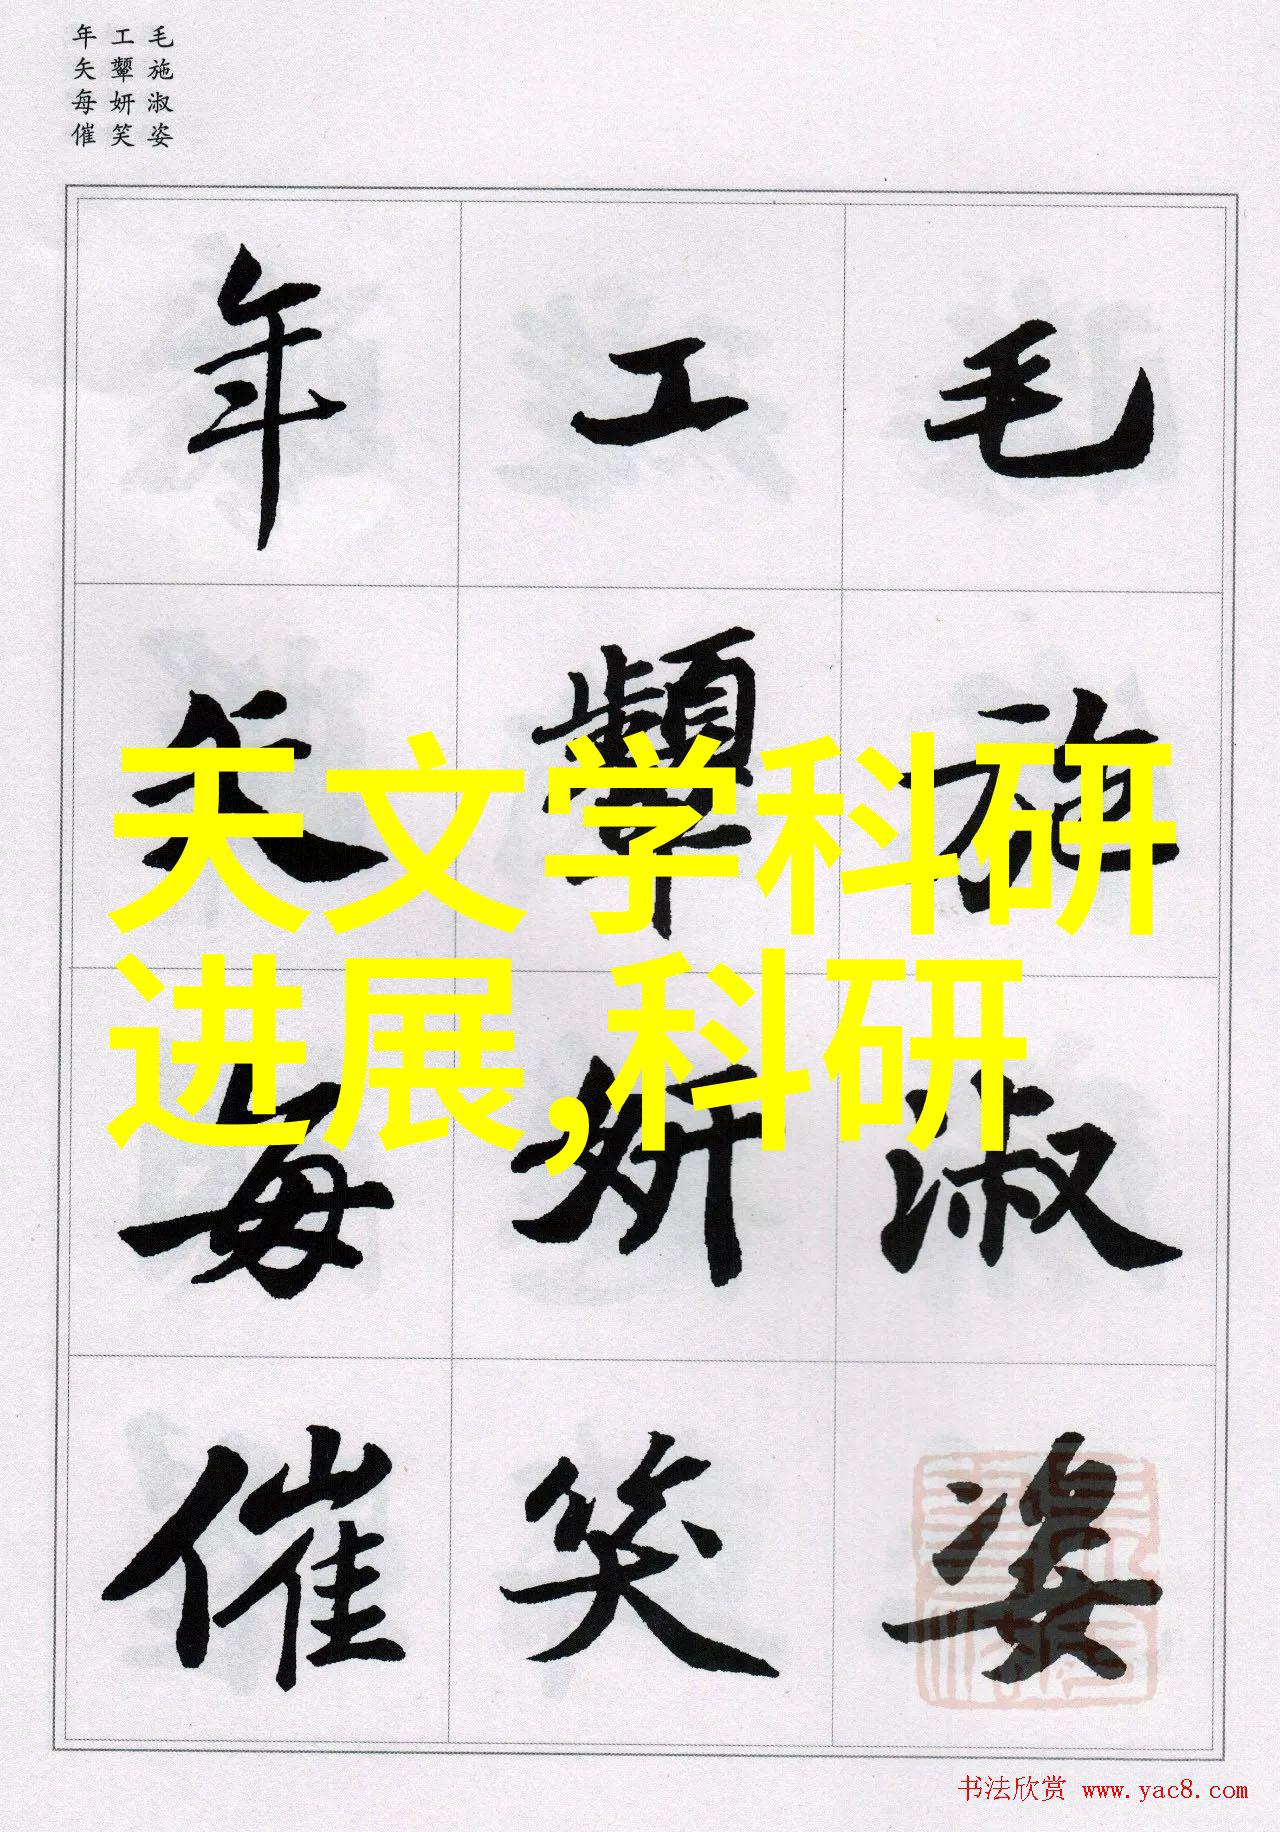 毛施淑姿
工颦妍笑
年矢每催
毛施淑姿
工颦妍笑
年矢每催
天文学科研
进展,科研
书法欣赏 www.yac8.com